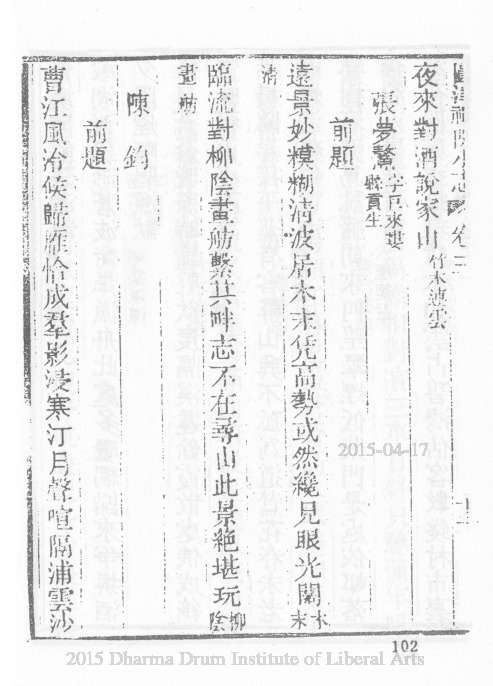 夜來對酒說家山竹木連雲
張夢鰲
前題
遠景妙糢糊清波居木末凭高勢或然纔見眼光闊木末
清
臨流對柳陰畫舫繫其畔志不在尋山此景絕堪玩柳陰
畫舫
陳鈞
前題
曹江風冷候歸雁恰成羣影淩寒汀月聲喧隔浦雲沙
102
2015-04-17
2015 Dharma Drum Institute of Liberal Arts